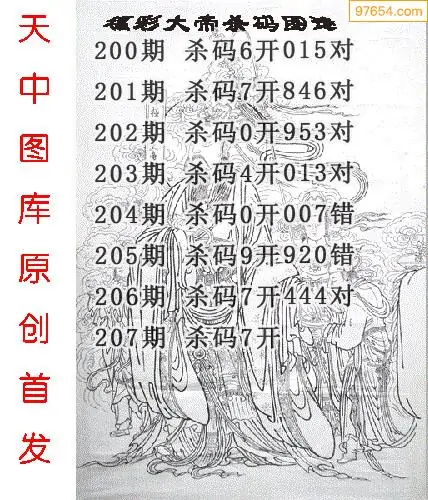 97654.com
福彩大帝杀码图迷
天中图库原创首发
200期 杀码6开015对
201期 杀码7开846对
202期 杀码0开953对
203期 杀码4开013对
204期 杀码0开007错
205期 杀码9开920错
206期 杀码7开444对
207期 杀码7开